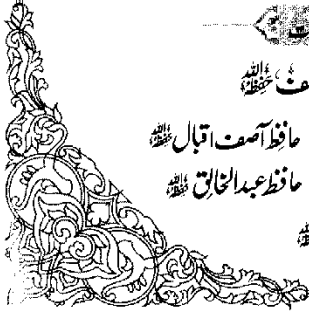 ف حفظہ اللہ
حافظ آصف اقبال حفظہ اللہ
حافظ عبدالخالق حفظہ اللہ
حفظہ اللہ